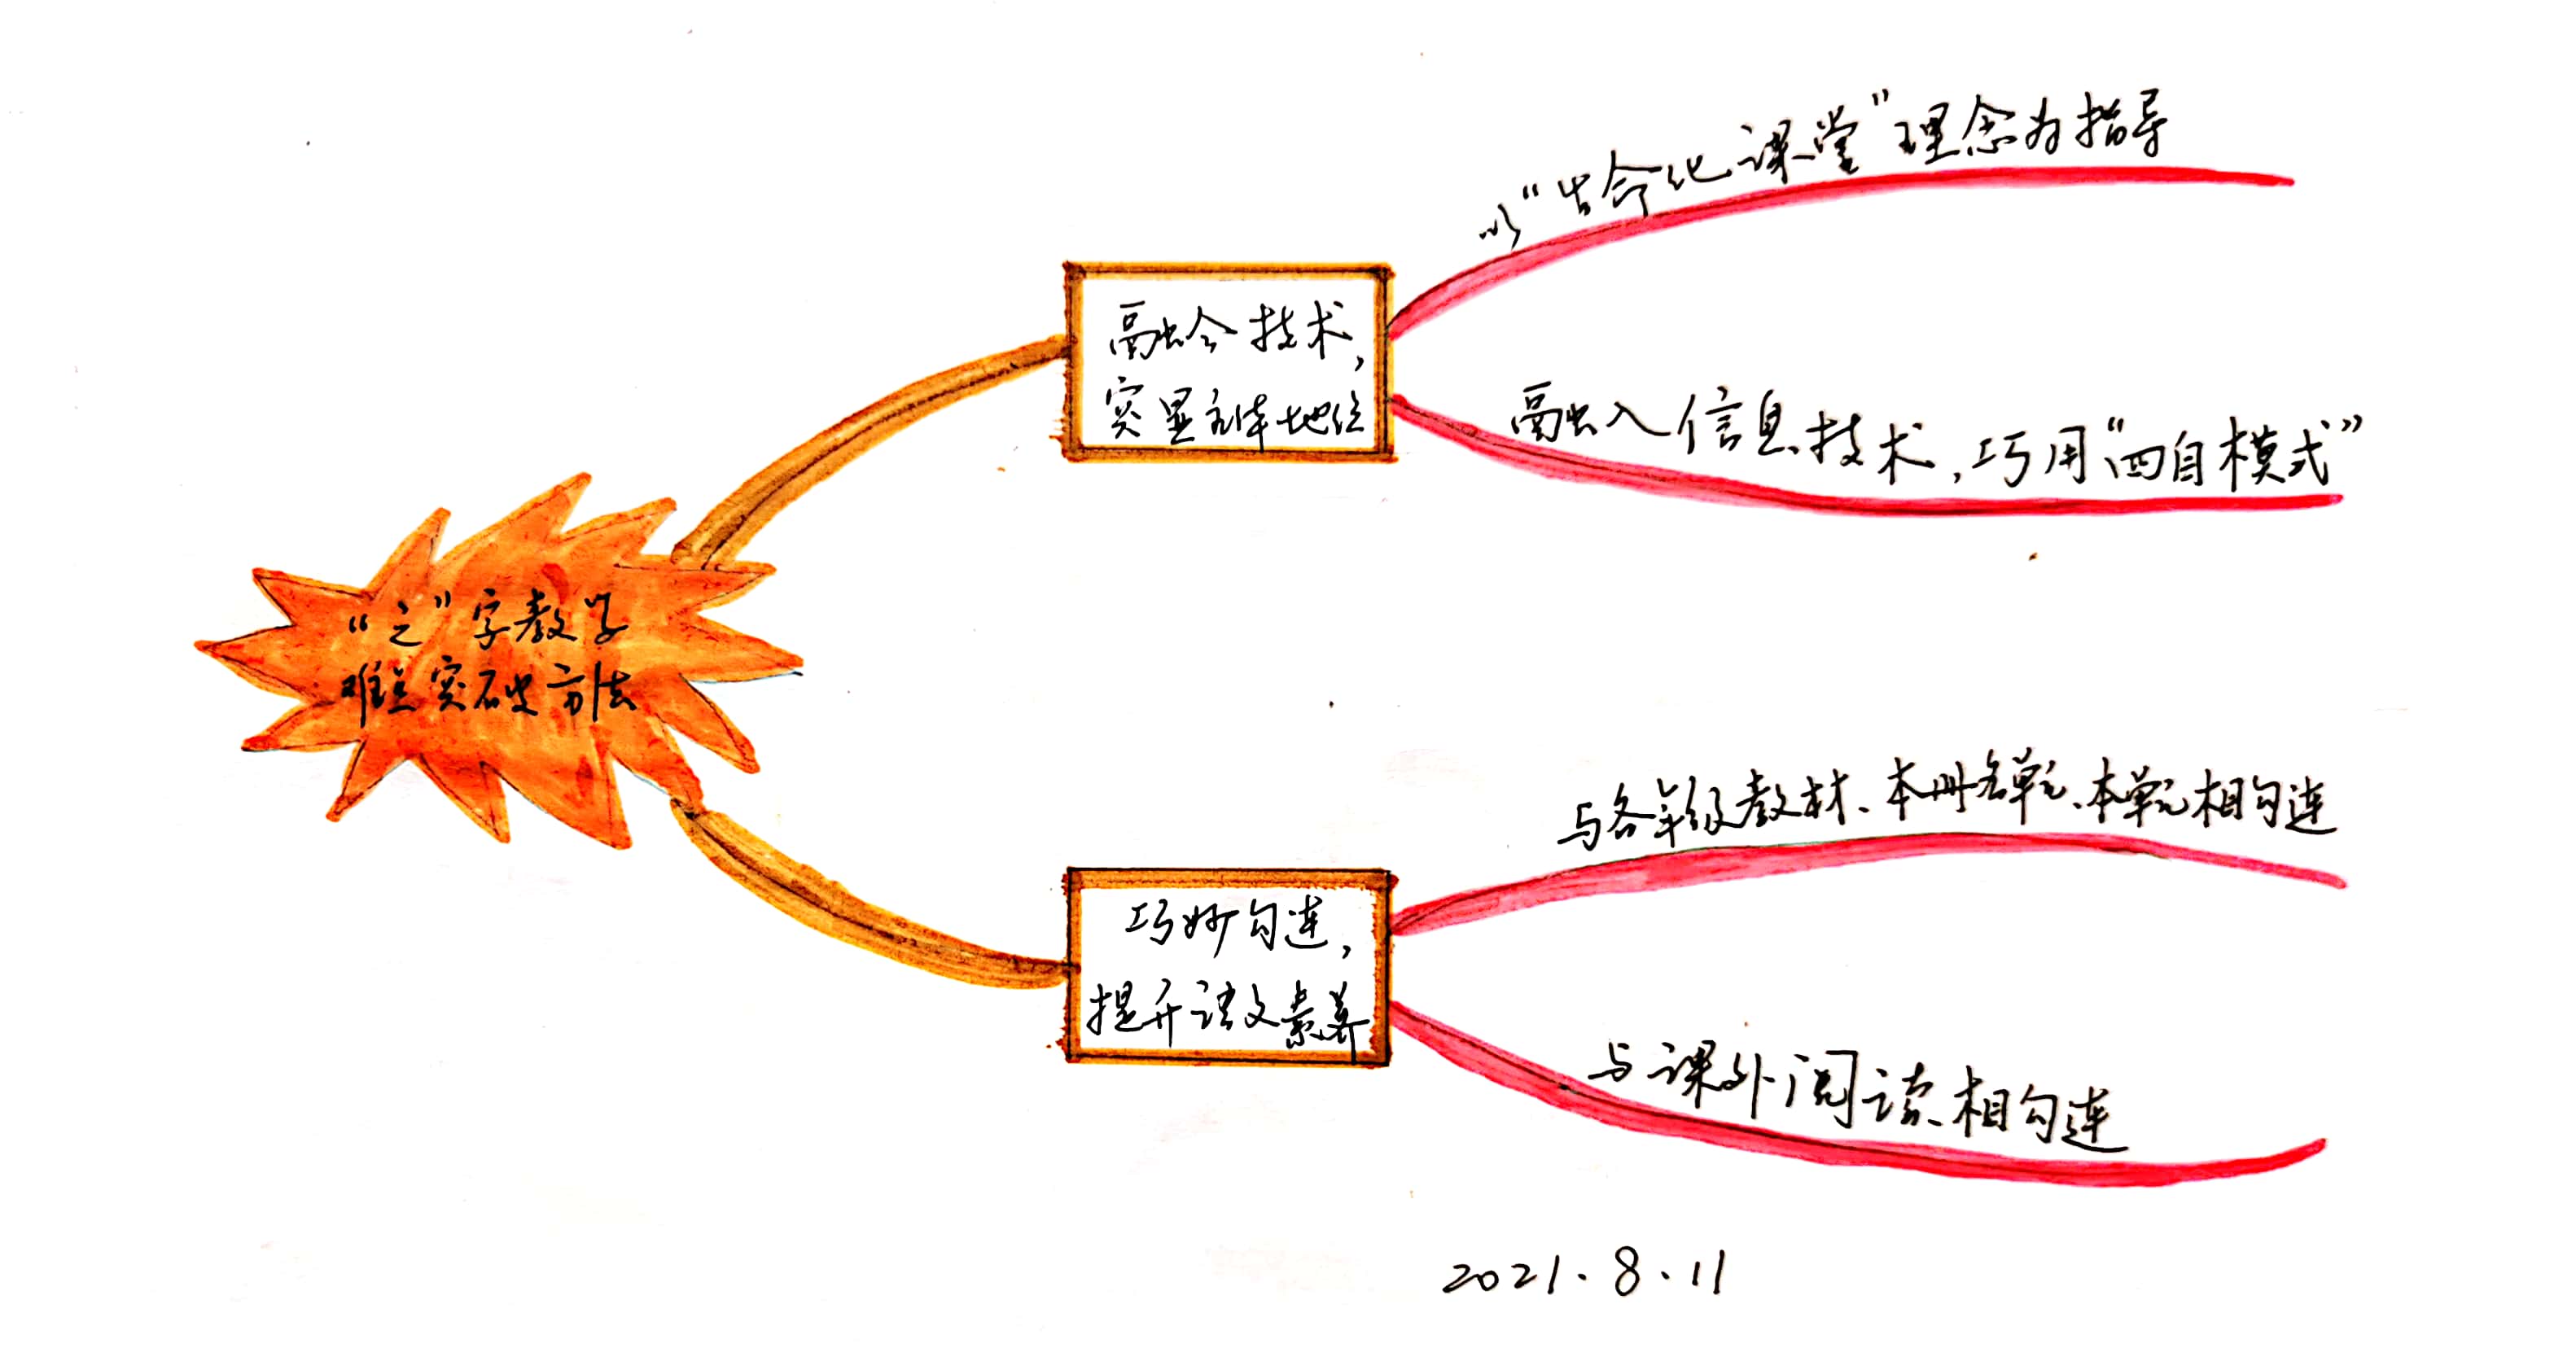 “之”字教学
难点突破方法
融合技术,
突显主体地位
以“生命化课堂”理念为指导
融入信息技术,巧用“四自模式”
巧妙勾连,
提升语文素养
与各年级教材、本册各单元、本单元相勾连
与课外阅读相勾连
2021.8.11